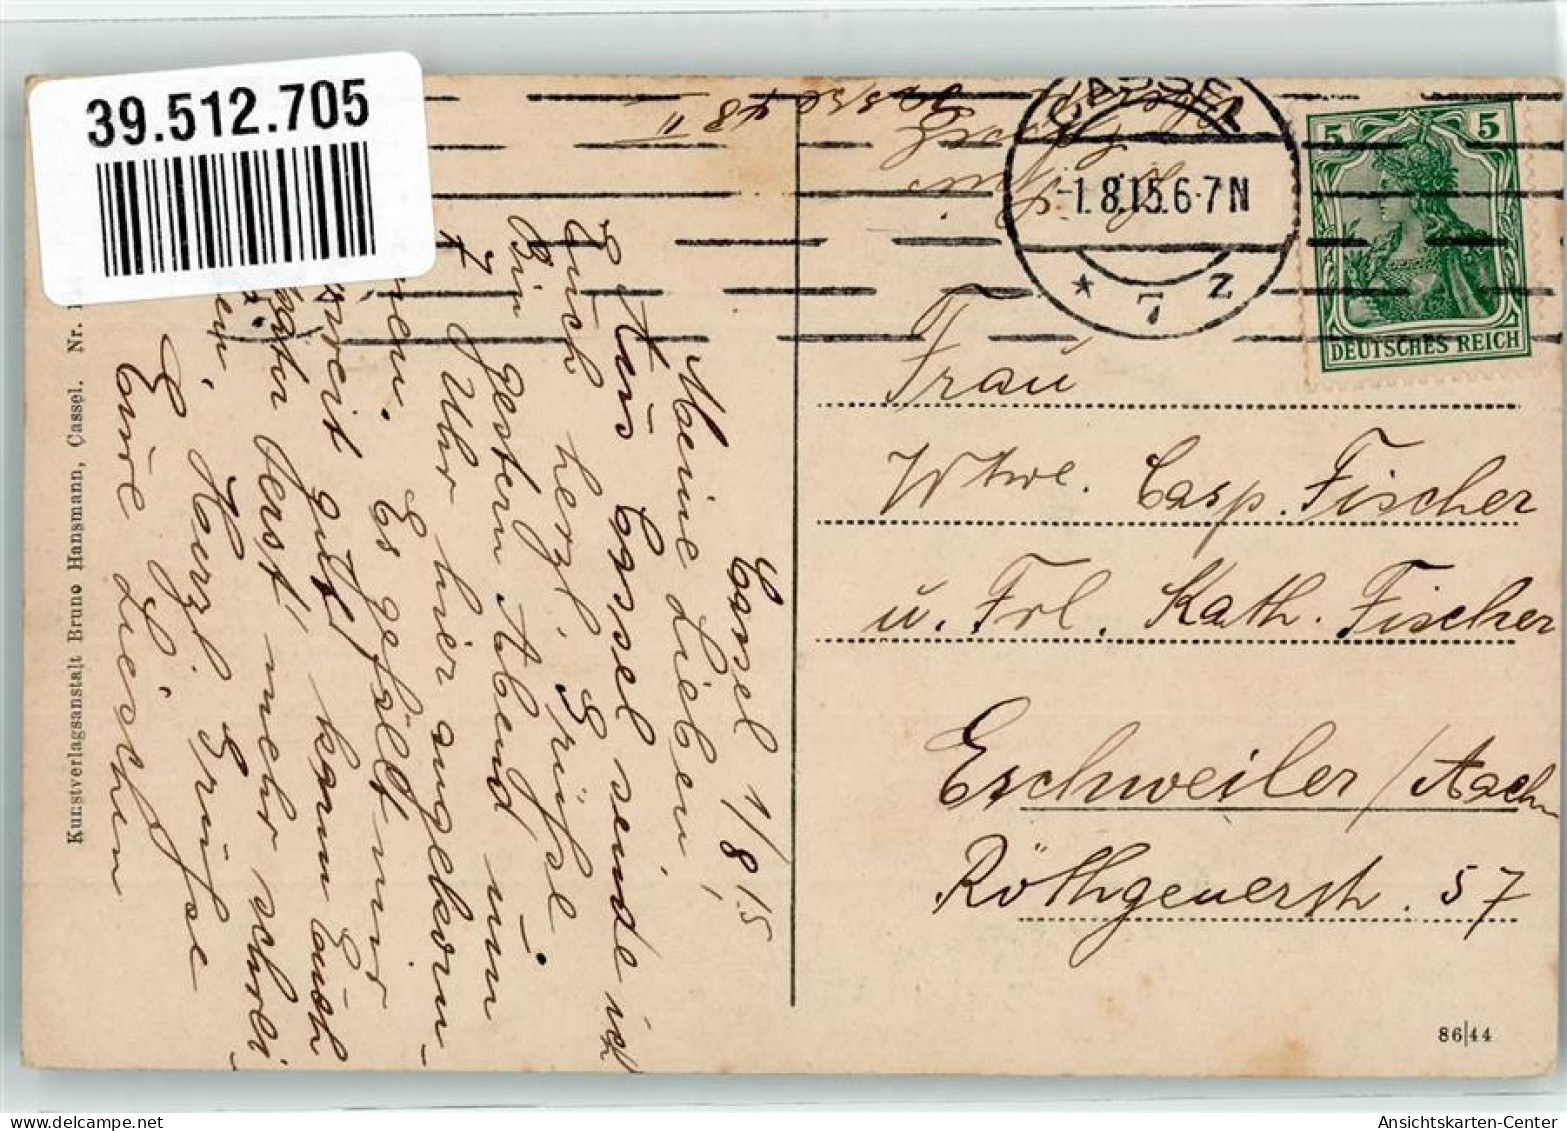 39.512.705
CASSEL
-1.8.15.6-7N
* 7 z
5 5
DEUTSCHES REICH
Frau
Wtwe. Casp. Fischer
u. Frl. Kath. Fischer
Eschweiler / Aachn
Röthgenerstr. 57
86|44
Cassel 1/8 15
Meine Lieben,
Aus Cassel sende ich
Euch herzl. Grüsse
Bin gestern Abend um
7 Uhr hier angekom-
men. Es gefällt mir
gut, kann Euch
ferst mehr schrei-
Herzl. Grüsse
Eure Lieschen
Kunstverlagsanstalt Bruno Hansmann, Cassel. Nr. 1
AnsichtsKarten-Center